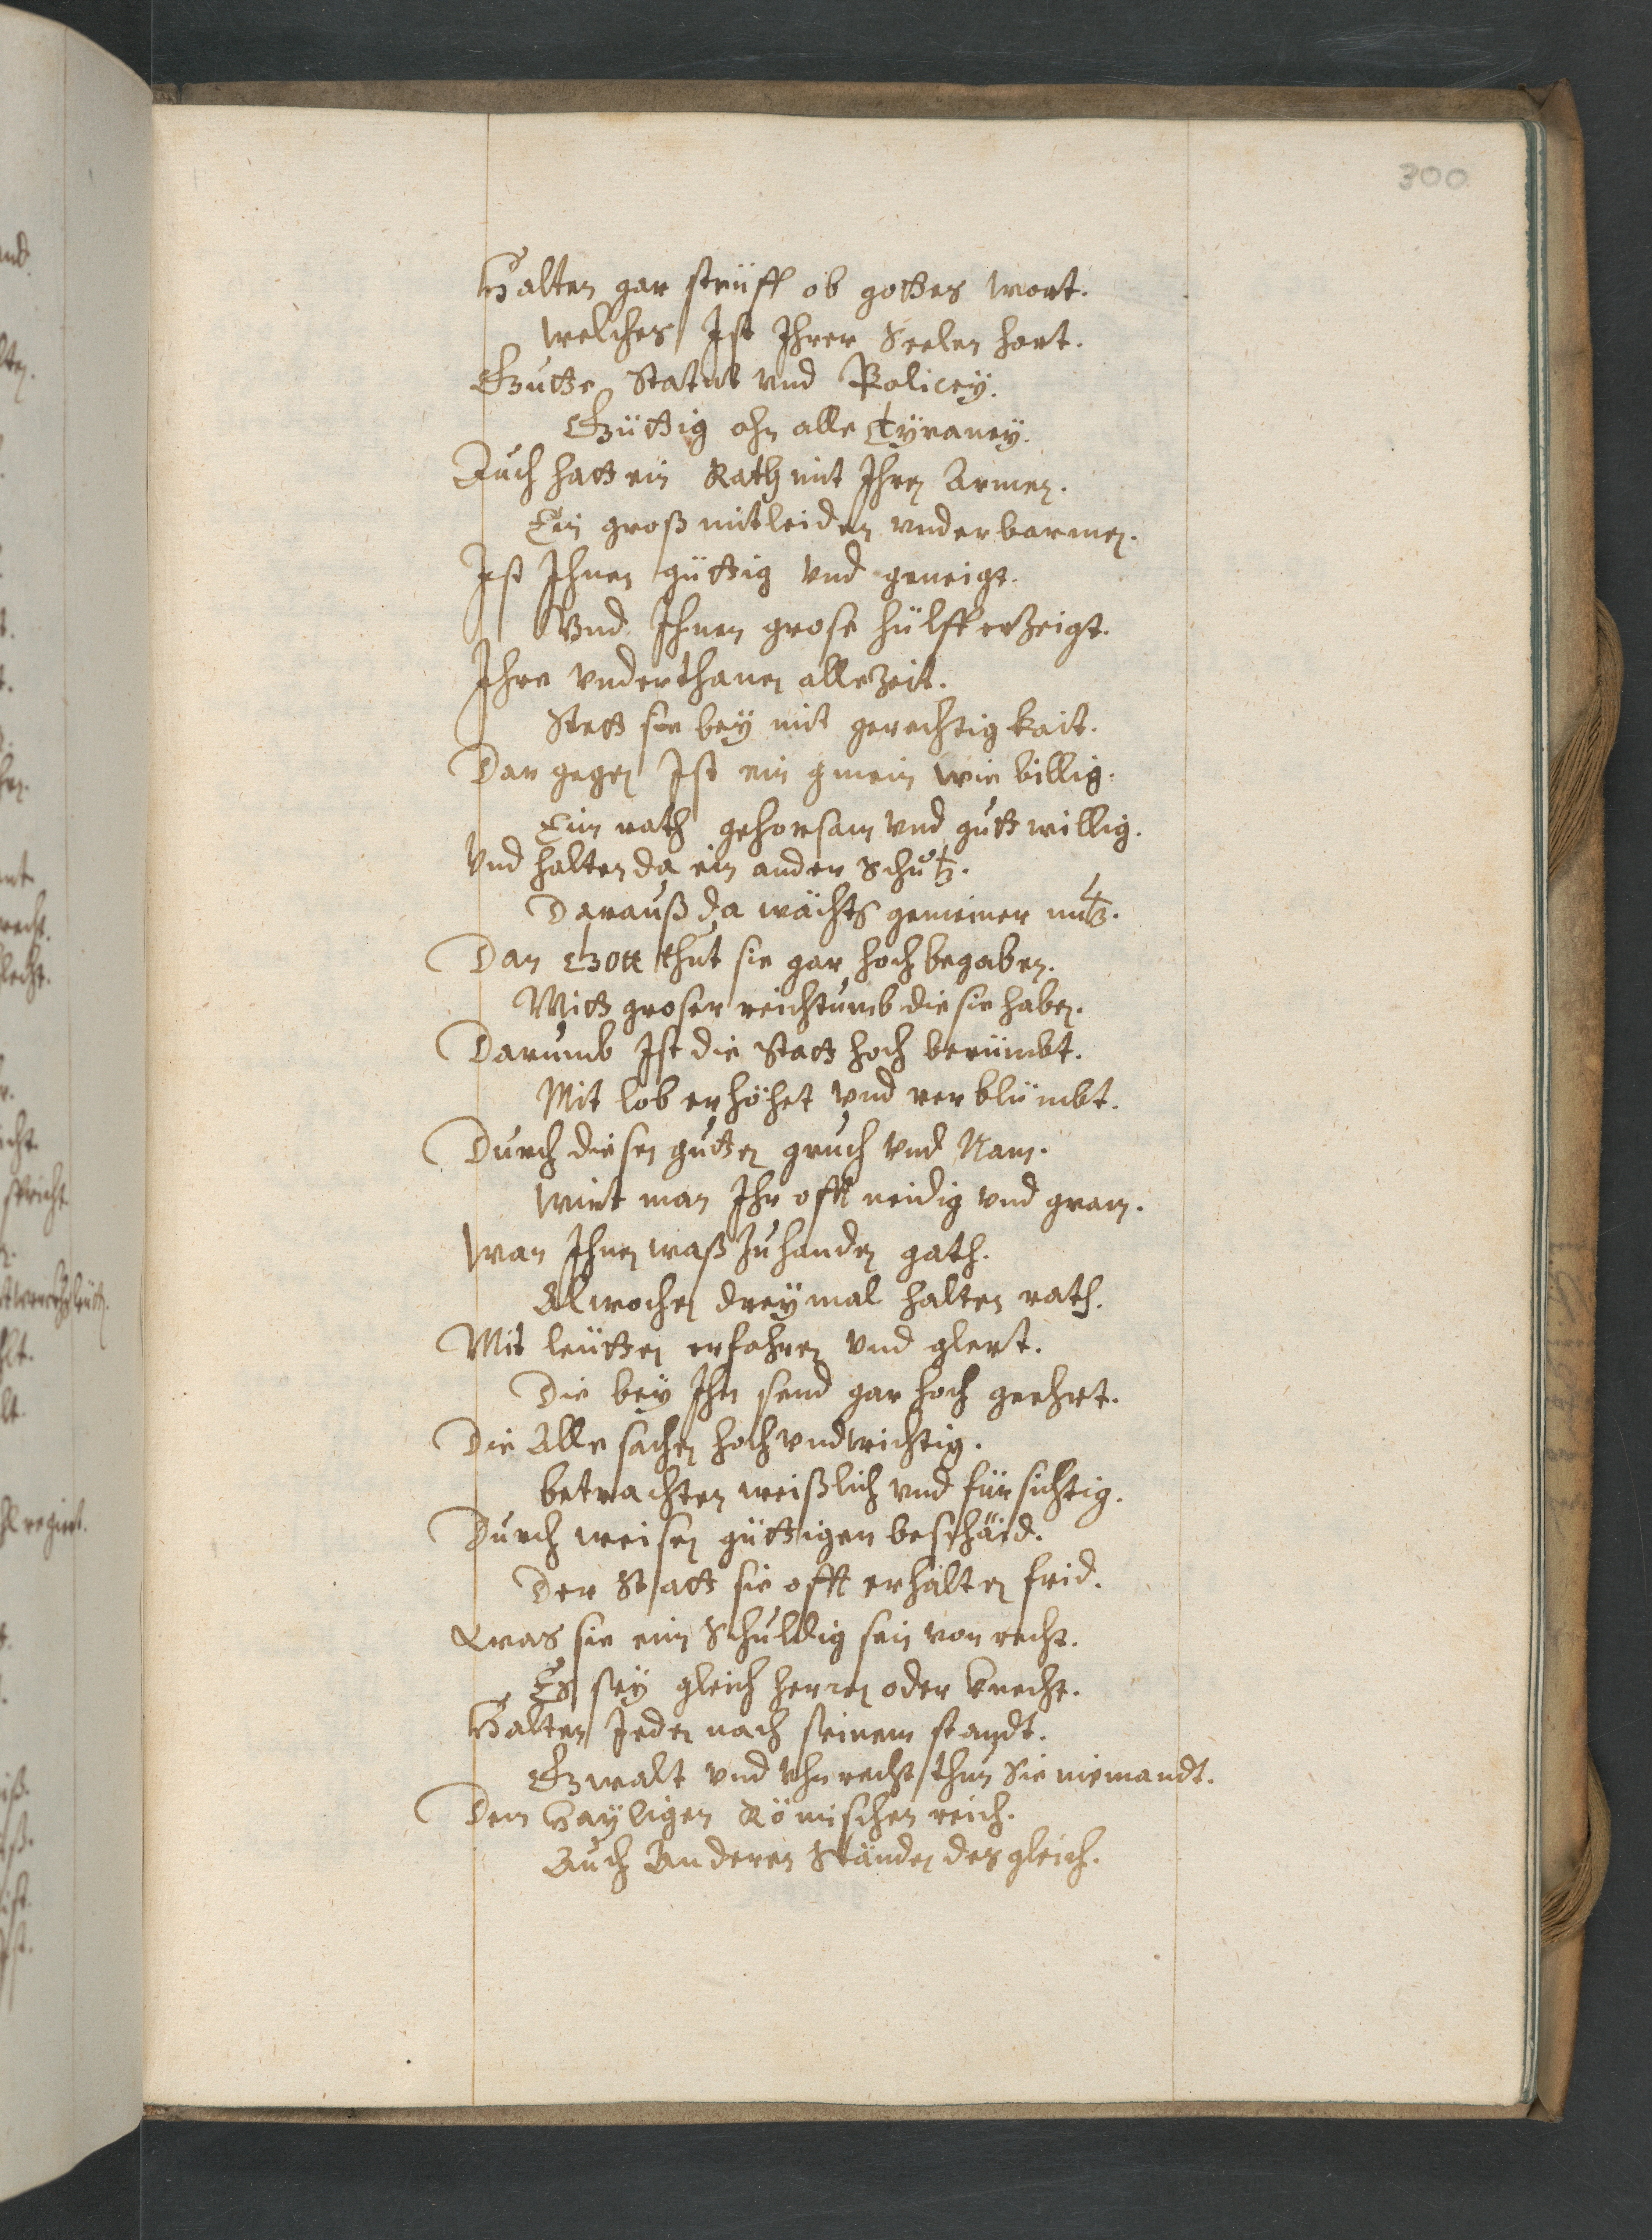 300
Halten gar steüff ob gottes wort.
welches Ist Ihrer Seelen hort.
Gutte Statut vnd Policey.
Güttig ohn alle Tÿraney.
Auch hatt ein Rath mit Ihren Armen.
Ein groß mitleiden vnderbarmen.
Ist Ihnen güttig vnd geneigt.
Vnd Ihnen grose hülff erzeigt.
Ihre vnderthanen allezeit.
Stett sie beÿ mit gerechtigkait.
Dar gegen Ist ein gmein wie billig.
Eim rath gehorsam vnd guttwillig.
Vnd halten da ein ander Schutz.
Darauß da wächts gemeiner nutz.
Dan Gott thut sie gar hoch begaben.
Mitt groser reichtumb die sie haben.
Darumb Ist die Statt hoch berümbt.
Mit lob erhöhet vnd verblümbt.
Durch diesen gutten gruch vnd Nam.
Wirt man Ihr offt neidig vnd gram.
Wan Ihnen waß Zuhanden gath.
Alwochen dreÿmal halten rath.
Mit leütten erfahren vnd glert.
Die beÿ Ihn send gar hoch geehrt.
Die Alle sachen hoch vndwichtig.
betrachten weißlich vnd fürsichtig.
Durch weisen güttigen bescheid.
Der Statt sie offt erhalten frid.
Was sie eim Schuldig sein von recht.
Es seÿ gleich herren oder knecht.
Halten Jeden nach seinem standt.
Gwalt vnd Vhnrecht thun Sie niemandt.
Dem Hayligen Römischen reich.
Auch Anderen Ständen desgleich.